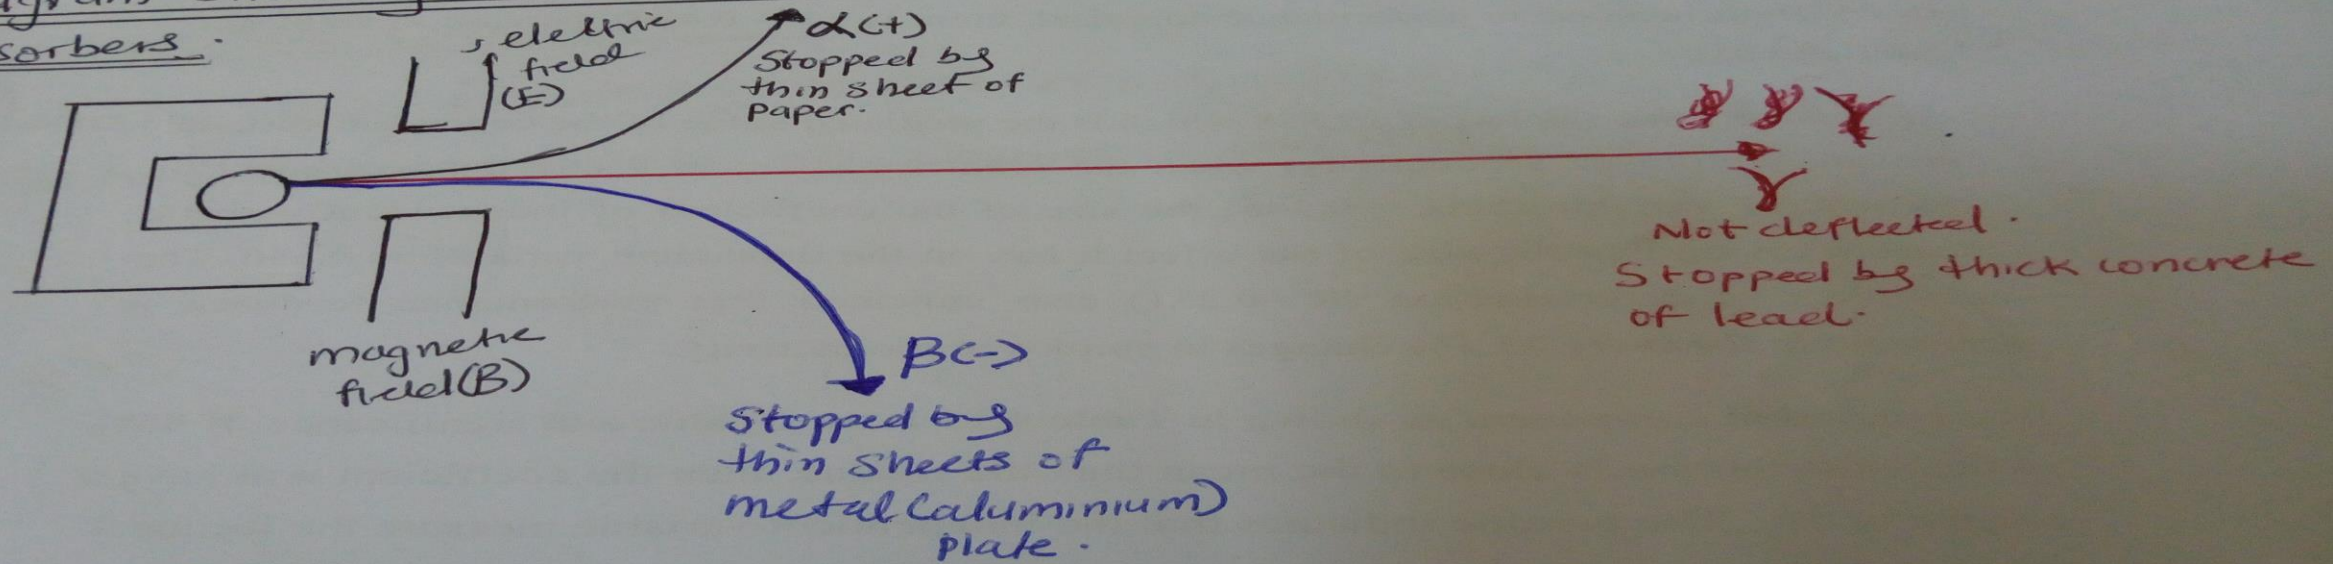 sorbers.
electric
field
(E)
α(+)
Stopped by
thin sheet of
paper.
γ
γ
Not deflected.
Stopped by thick concrete
of lead.
magnetic
field(B)
β(-)
Stopped by
thin sheets of
metal (aluminium)
plate.